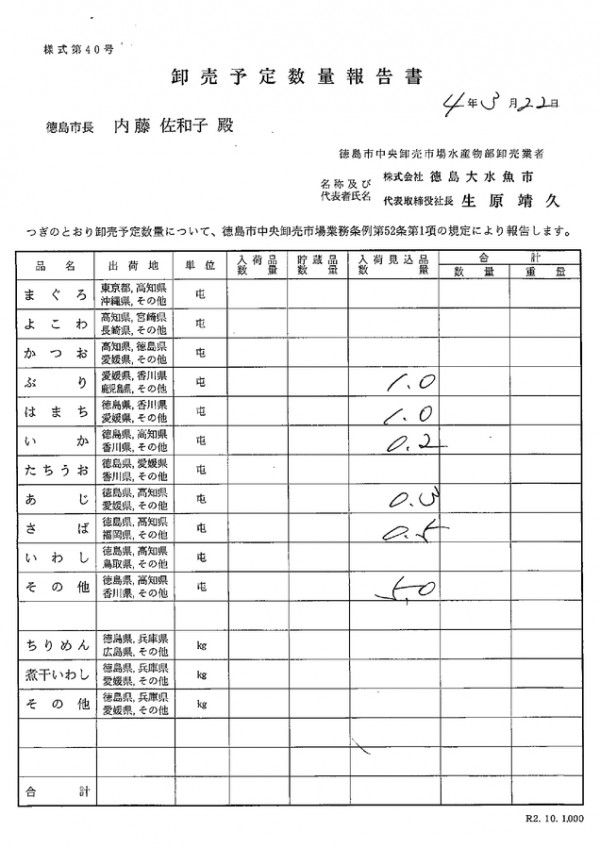 様式第40号
卸売予定数量報告書
4年3月22日
徳島市長 内藤 佐和子 殿
徳島市中央卸売市場水産物部卸売業者
名称及び 株式会社 徳島大水魚市
代表者氏名 代表取締役社長 生原靖久
つぎのとおり卸売予定数量について、徳島市中央卸売市場業務条例第52条第1項の規定により報告します。
品名 出荷地 単位 入荷品数量 貯蔵品数量 入荷見込品数量 合計
数量 重量
まぐろ 東京都,高知県 沖縄県,その他 屯
よこわ 高知県,宮崎県 長崎県,その他 屯
かつお 高知県,徳島県 愛媛県,その他 屯
ぶり 愛媛県,香川県 鹿児島県,その他 屯 1.0
はまち 徳島県,香川県 愛媛県,その他 屯 1.0
いか 徳島県,高知県 香川県,その他 屯 0.2
たちうお 徳島県,愛媛県 香川県,その他 屯
あじ 徳島県,高知県 愛媛県,その他 屯 0.3
さば 徳島県,高知県 福岡県,その他 屯 0.5
いわし 徳島県,高知県 鳥取県,その他 屯
その他 徳島県,高知県 香川県,その他 屯 5.0
ちりめん 徳島県,兵庫県 広島県,その他 kg
煮干いわし 徳島県,兵庫県 愛媛県,その他 kg
その他 徳島県,兵庫県 愛媛県,その他 kg
合計
R2.10.1,000